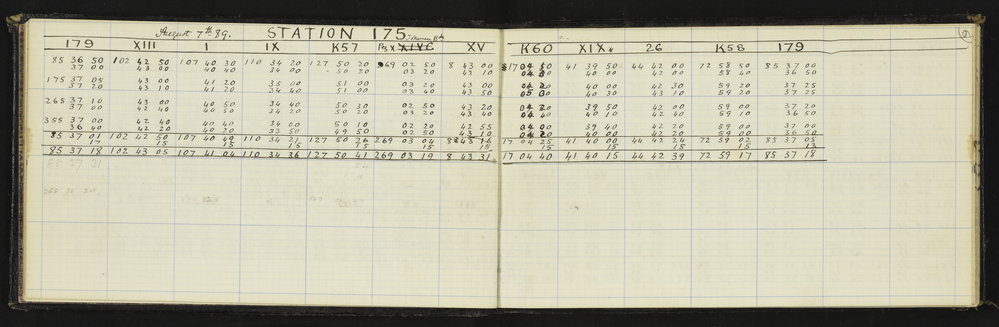 August 7th 89. STATION 175
179 XIII I IX K57 XV K60 XIX 26 K58 179
85 36 50 102 42 50 107 40 30 110 34 20 127 50 20 269 02 50 8 43 00 17 04 50 41 39 50 44 42 00 72 58 50 85 37 00
37 00 43 00 40 40 34 00 50 20 03 20 43 10 40 00 42 00 58 40 36 50
175 37 05 43 00 41 20 35 00 51 00 03 20 43 00 40 00 42 30 59 20 37 25
37 20 43 10 41 20 34 40 51 00 03 40 43 50 40 30 43 10 59 20 37 25
265 37 10 43 00 40 50 34 40 50 30 02 50 43 20 39 50 42 00 59 00 37 20
37 00 42 40 40 50 34 20 50 30 03 20 43 20 40 10 42 40 59 10 36 50
355 37 00 42 40 40 40 34 00 50 10 02 20 42 55 39 40 42 20 59 00 37 00
36 40 42 20 40 20 33 50 49 50 02 50 43 10 40 00 42 20 59 00 36 50
85 37 01 102 42 50 107 40 49 110 34 21 127 50 26 269 03 04 8 43 16 17 04 25 41 40 00 44 42 24 72 59 02 85 37 03
17 15 15 15 15 15 15 15 15 15 15
85 37 18 102 43 05 107 41 04 110 34 36 127 50 41 269 03 19 8 43 31 17 04 40 41 40 15 44 42 39 72 59 17 85 37 18